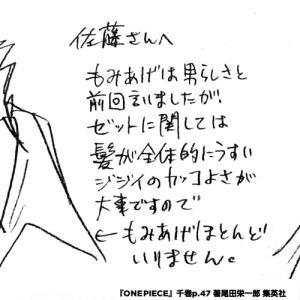 佐藤さんへ
もみあげは男らしさと
前回言いましたが、
ゼットに関しては
髪が全体的にうすい
ジジイのカッコよさが
大事ですので
←もみあげほとんど
いりません。
『ONEPIECE』千巻p.47 著尾田栄一郎 集英社